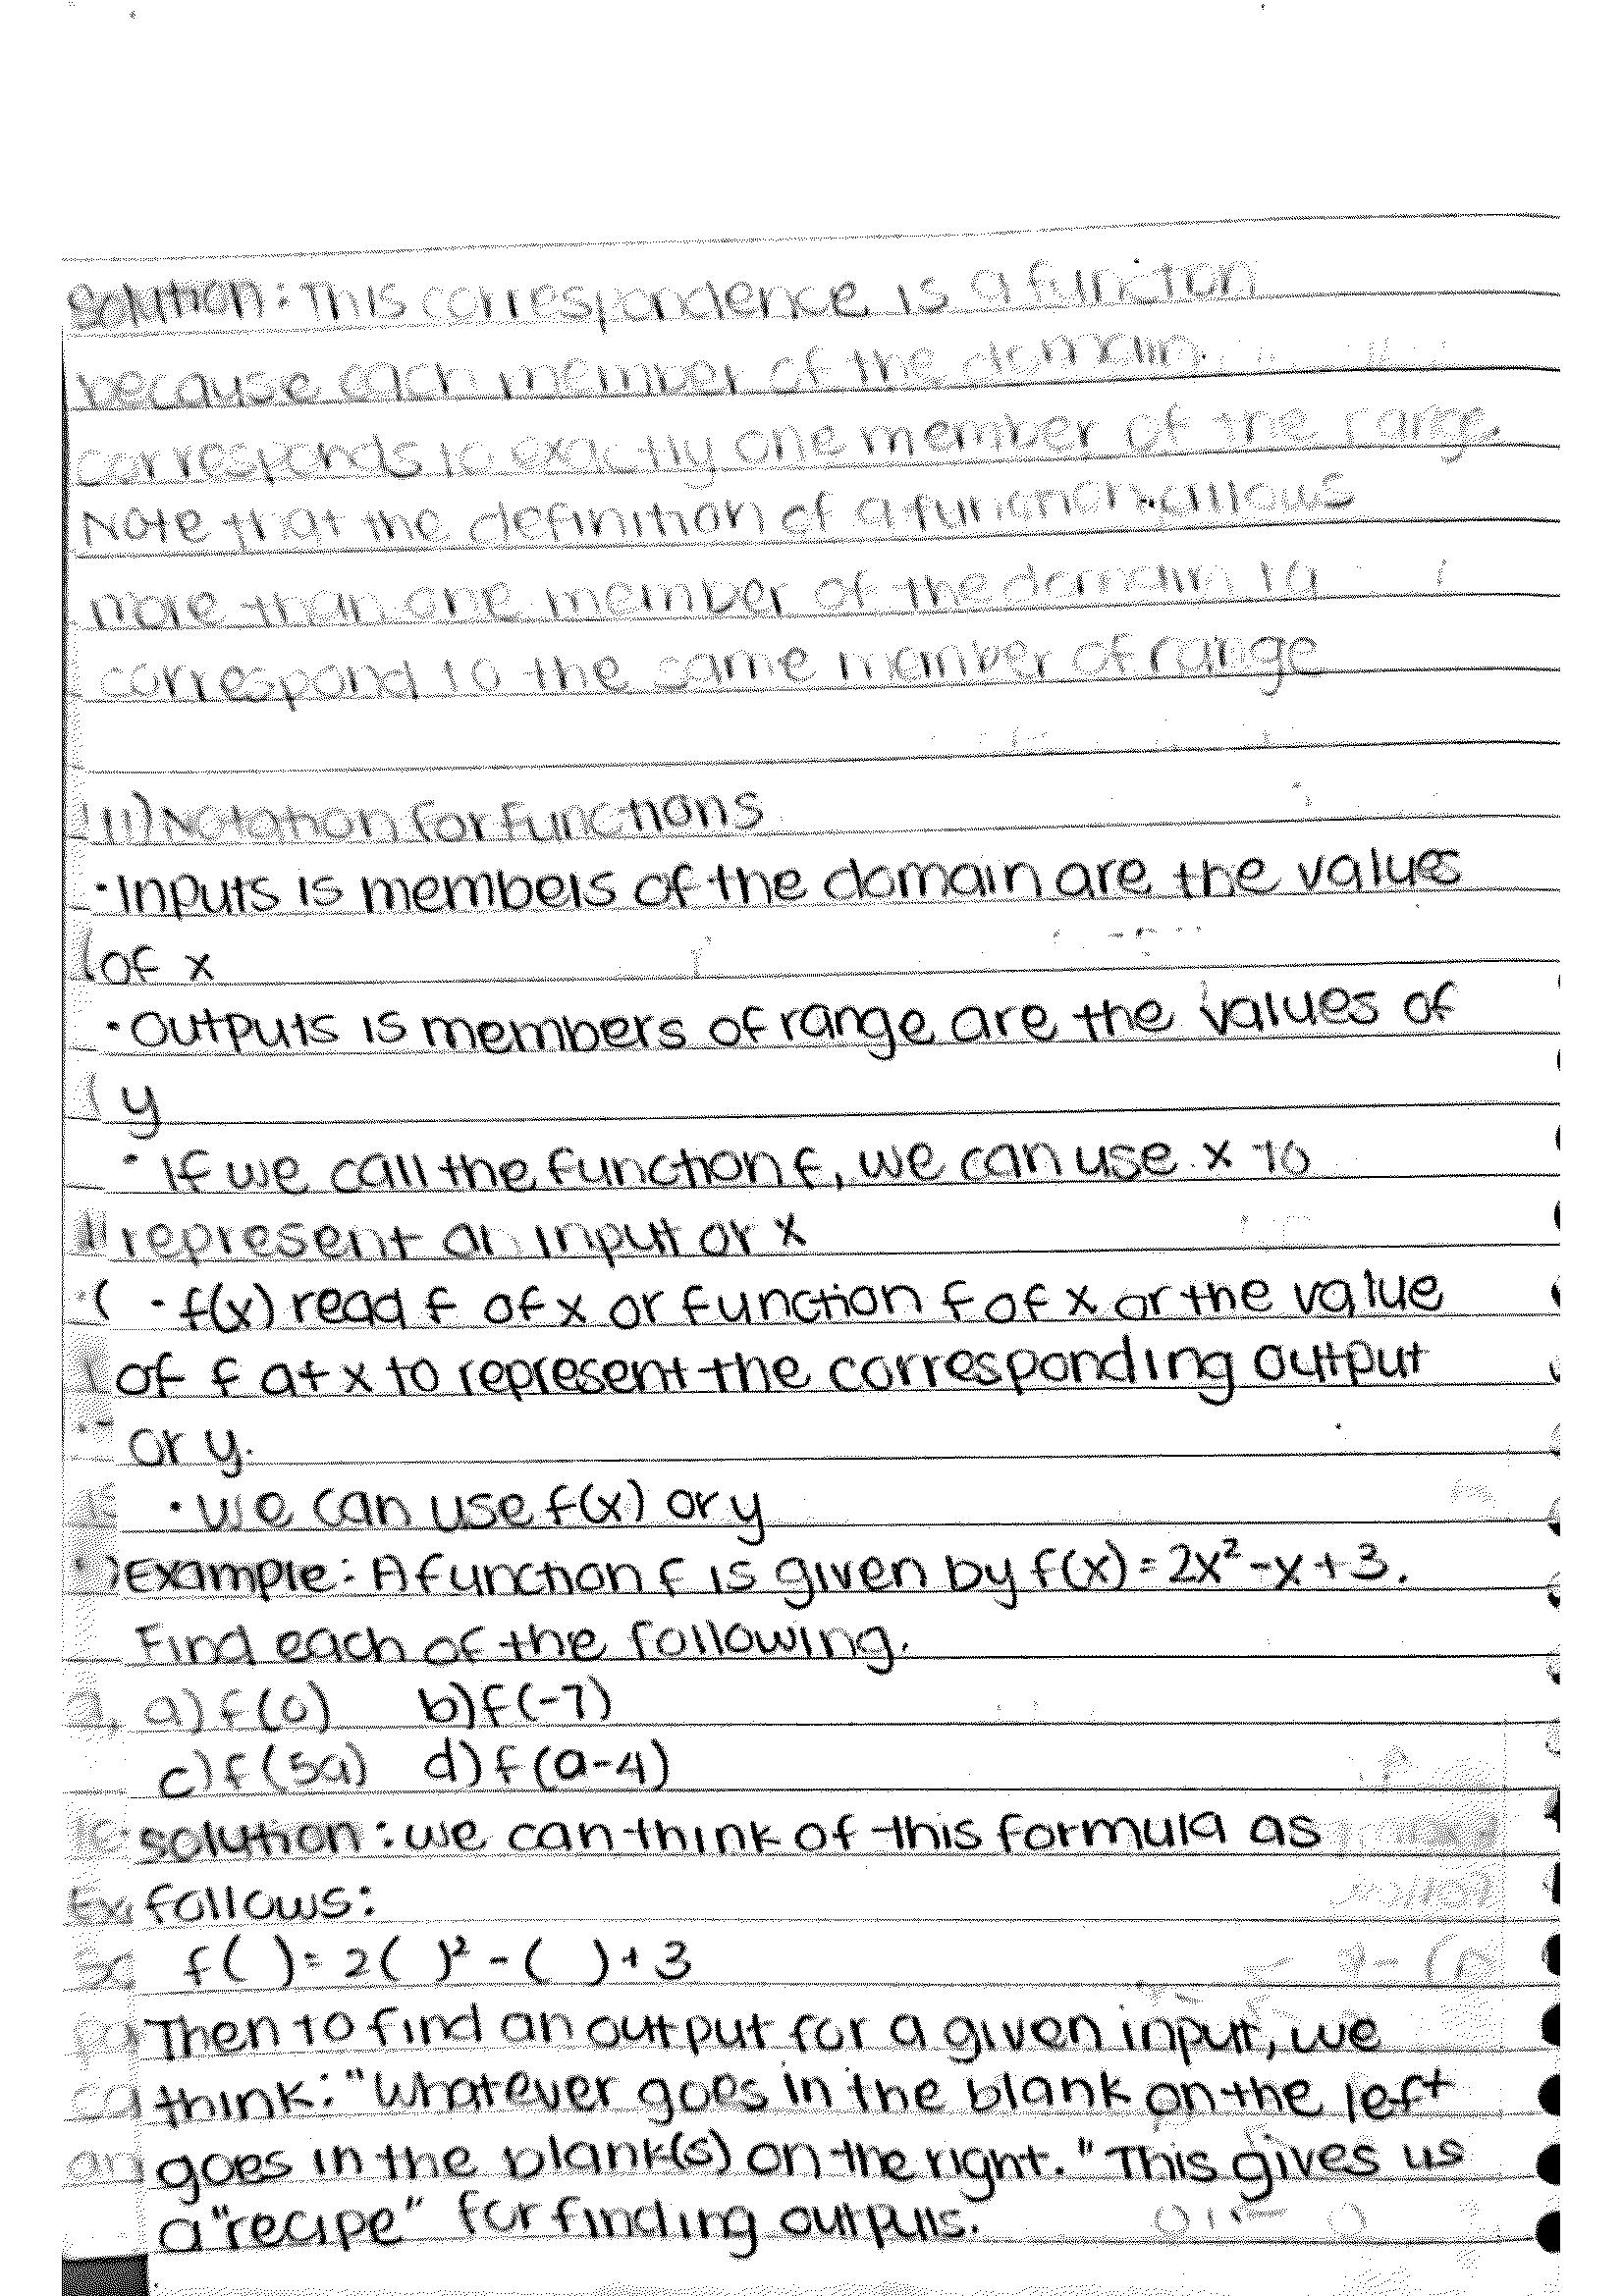 Solution: This correspondence is a function
because each member of the domain
corresponds to exactly one member of the range.
Note that the definition of a function allows
more than one member of the domain to
correspond to the same member of range
II) Notation for Functions
• Inputs is members of the domain are the values
of x
• Outputs is members of range are the values of
y
• If we call the function f, we can use x to
represent an input or x
• f(x) read f of x or function f of x or the value
of f at x to represent the corresponding output
or y.
• We can use f(x) or y
Example: A function f is given by f(x) = 2x² - x + 3.
Find each of the following.
a) f(0) b) f(-7)
c) f(5a) d) f(a-4)
Solution: we can think of this formula as
follows:
f( ) = 2( )² - ( ) + 3
Then to find an output for a given input, we
think: "Whatever goes in the blank on the left
goes in the blank(s) on the right." This gives us
a "recipe" for finding outputs.